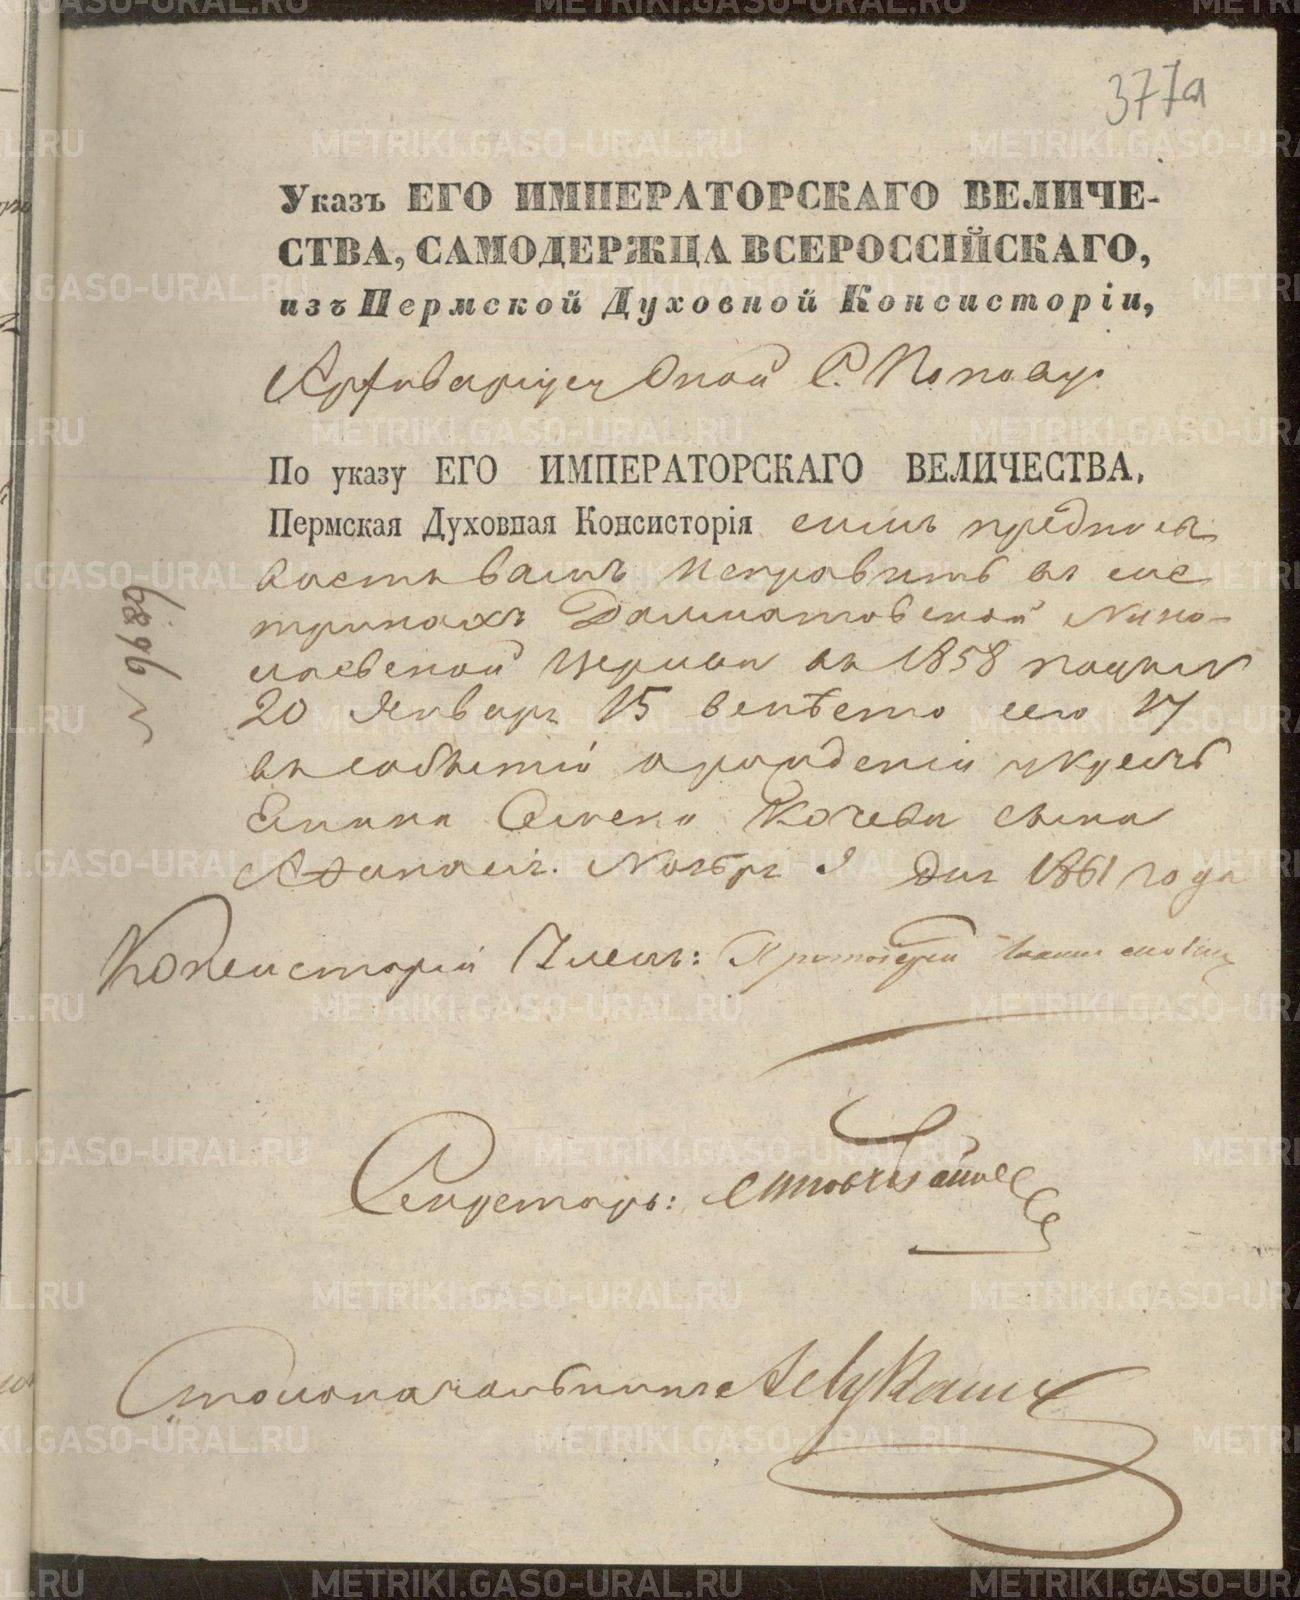 377а
Указъ ЕГО ИМПЕРАТОРСКАГО ВЕЛИЧЕ-
СТВА, САМОДЕРЖЦА ВСЕРОССІЙСКАГО,
изъ Пермской Духовной Консисторіи,
Архиваріусу Оной С. Попову.
По указу ЕГО ИМПЕРАТОРСКАГО ВЕЛИЧЕСТВА,
Пермская Духовная Консисторія симъ предписы
ваетъ вамъ исправить въ ме
трикахъ Далматовской Нико-
лаевской церкви въ 1858 подъ №
20 Январь 15 вмѣсто сего 17
въ событіи о рожденіи у крест
сына
Афанасія. Ноября 9 дня 1861 года
№ 9689
Консисторіи Членъ: Протоіерей
Секретарь:
Столоначальникъ
METRIKI.GASO-URAL.RU